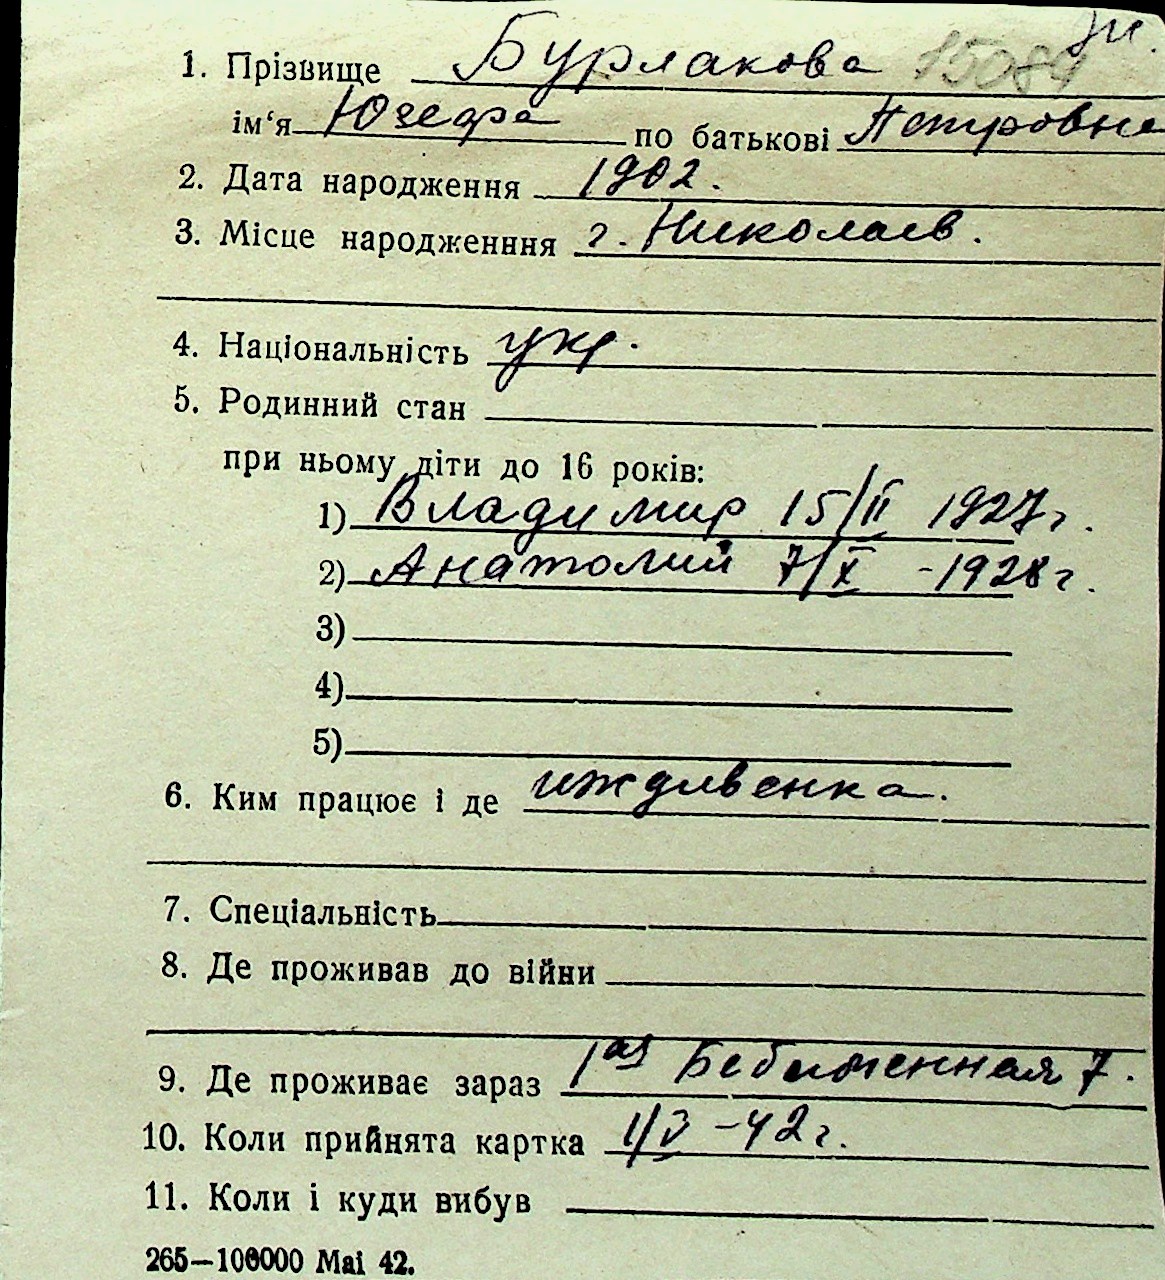 1. Прізвище Бурлакова
ім‘я Юзефа по батькові Петровна
2. Дата народження 1902.
3. Місце народженння г. Николаев.
4. Національність укр.
5. Родинний стан
при ньому діти до 16 років:
1) Владимир 15/II 1927 г.
2) Анатолий 7/X - 1928 г.
3)
4)
5)
6. Ким працює і де иждивенка.
7. Спеціальність
8. Де проживав до війни
9. Де проживає зараз 1ая 7.
10. Коли прийнята картка 1/V - 42 г.
11. Коли і куди вибув
265—100000 Mai 42.